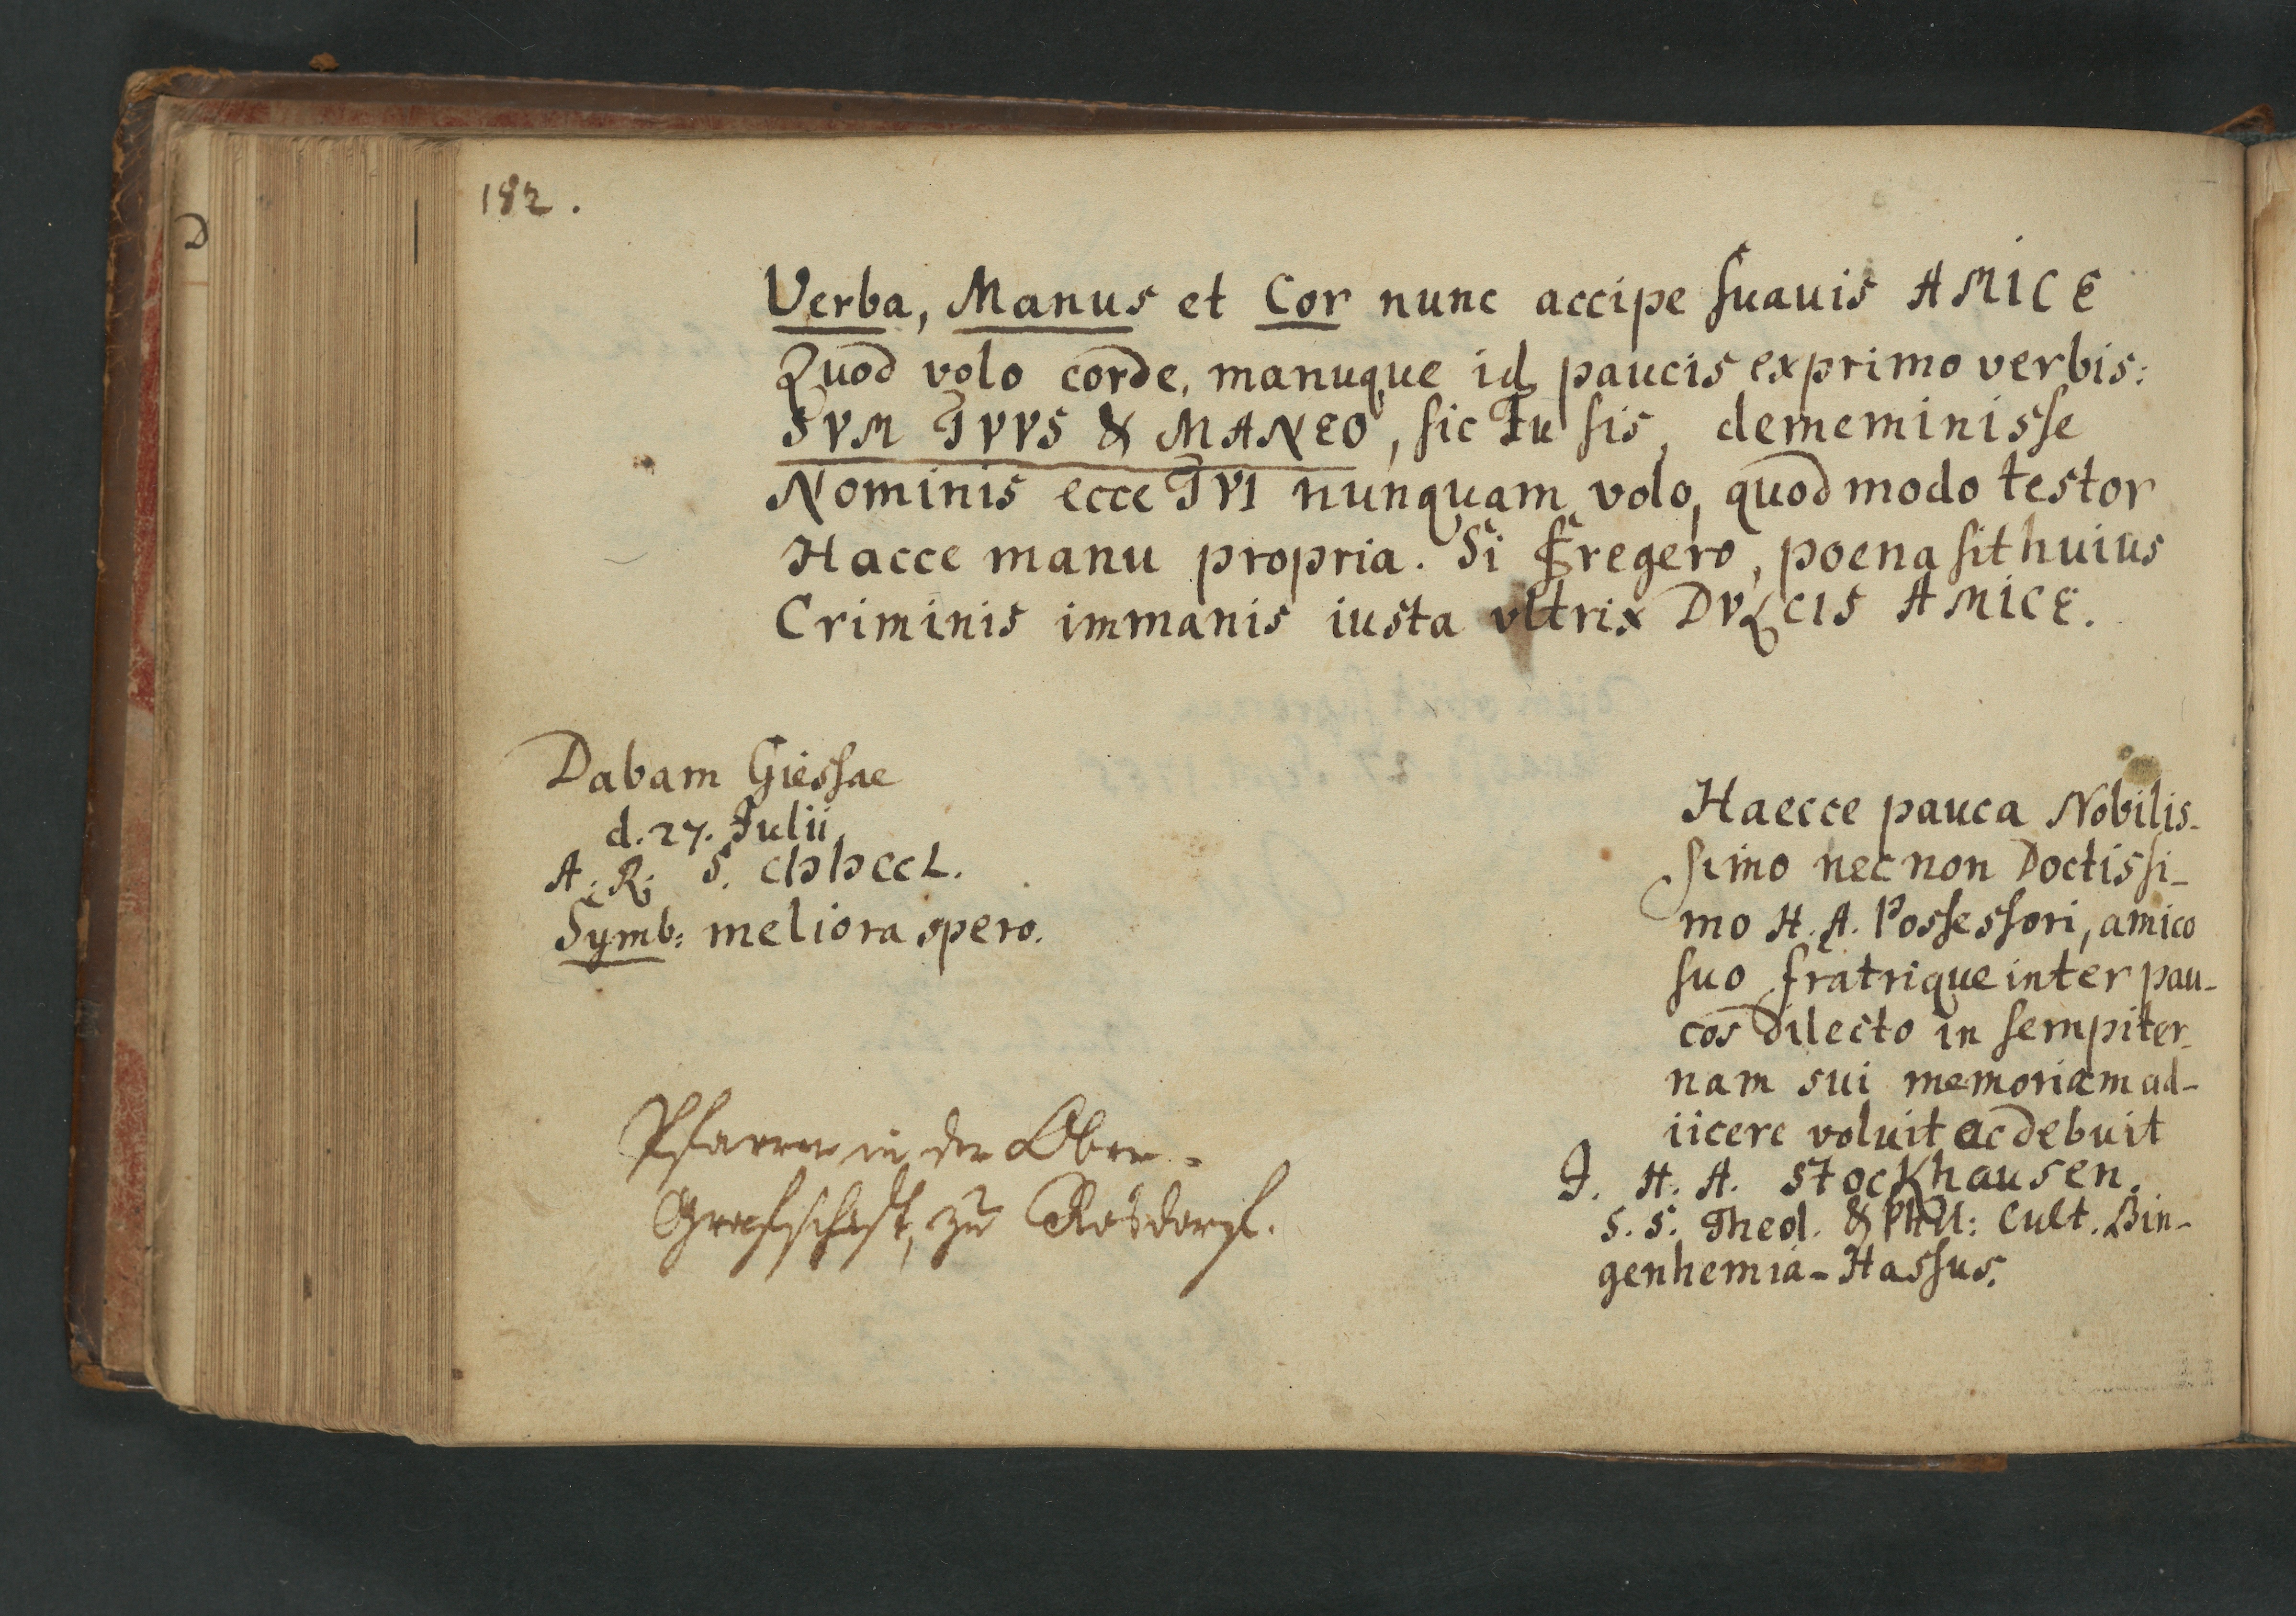 182.
Verba, Manus et Cor nunc accipe suavis AMICE
Quod volo corde, manuque id paucis exprimo verbis:
SVM TVVS & MANEO, sic Tu sis, dememinisse
Nominis ecce TVI nunquam volo, quod modo testor
Hacce manu propria. Si Fregero, poena sit huius
Criminis immanis iusta vltrix DVLCIS AMICE.
Dabam Giessae
d. 27. Julii
A. R. S. CIƆIƆCCL.
Symb: meliora spero.
Haecce pauca Nobilis-
simo nec non Doctissi-
mo H. A. Possessori, amico
suo fratrique inter pau-
cos dilecto in sempiter-
nam sui memoriam ad-
iicere voluit ac debuit
J. H. A. Stockhausen.
S. S. Theol. & Phil: Cult. Bin-
genhemia-Hassus.
Pfarrer in der Ober-
Grafschaft, zu Rosdorf.
D